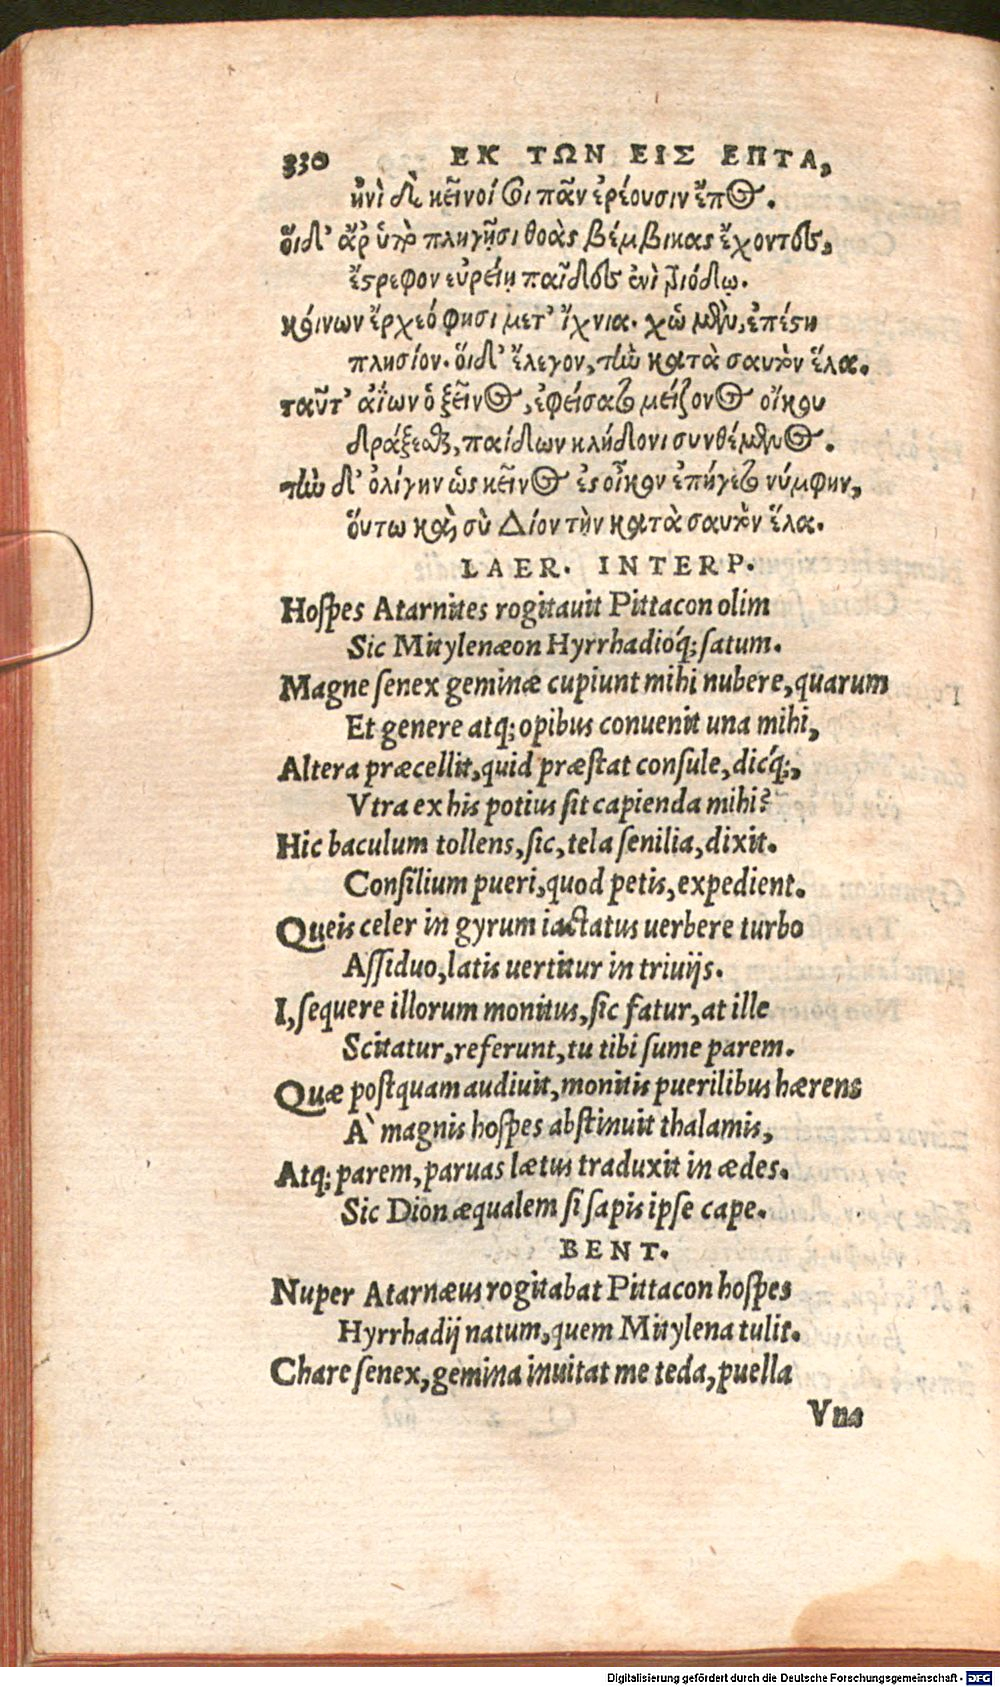 330 ΕΚ ΤΩΝ ΕΙΣ ΕΠΤΑ,
ἠνὶ δὲ κεῖνοί σοι πᾶν ἐρέουσιν ἔπος.
ὅιδ' ἄρ ὑπὸ πληγῇσι θοὰς βέμβικας ἔχοντες,
ἔστρεφον εὐρείῃ παῖδες ἐνὶ τριόδῳ.
κείνων ἔρχεό φησι μετ' ἴχνια. χὠ μὲν, ἐπέστη
πλησίον. ὅιδ' ἔλεγον, τὴν κατὰ σαυτὸν ἔλα.
ταῦτ' ἀΐων ὁ ξεῖνος, ἐφείσατο μείζονος οἴκου
δράξεσθαι, παίδων κληδόνι συνθέμενος.
τὴν δ' ὀλίγην ὡς κεῖνος ἐς οἶκον ἐπήγετο νύμφην,
ὅυτω καὶ σὺ Δίον τὴν κατὰ σαυτὸν ἔλα.
LAER. INTERP.
Hospes Atarnites rogitauit Pittacon olim
Sic Mitylenæon Hyrrhadióq; satum.
Magne senex geminæ cupiunt mihi nubere, quarum
Et genere atq; opibus conuenit una mihi,
Altera præcellit, quid præstat consule, dicq́;,
Vtra ex his potius sit capienda mihi?
Hic baculum tollens, sic, tela senilia, dixit.
Consilium pueri, quod petis, expedient.
Queis celer in gyrum iactatus uerbere turbo
Assiduo, latis uertitur in triuijs.
I, sequere illorum monitus, sic fatur, at ille
Scitatur, referunt, tu tibi sume parem.
Quæ postquam audiuit, monitis puerilibus hærens
A` magnis hospes abstinuit thalamis,
Atq; parem, paruas lætus traduxit in ædes.
Sic Dion æqualem si sapis ipse cape.
BENT.
Nuper Atarnæus rogitabat Pittacon hospes
Hyrrhadij natum, quem Mitylena tulit.
Chare senex, gemina inuitat me teda, puella
Vna
Digitalisierung gefördert durch die Deutsche Forschungsgemeinschaft - DFG